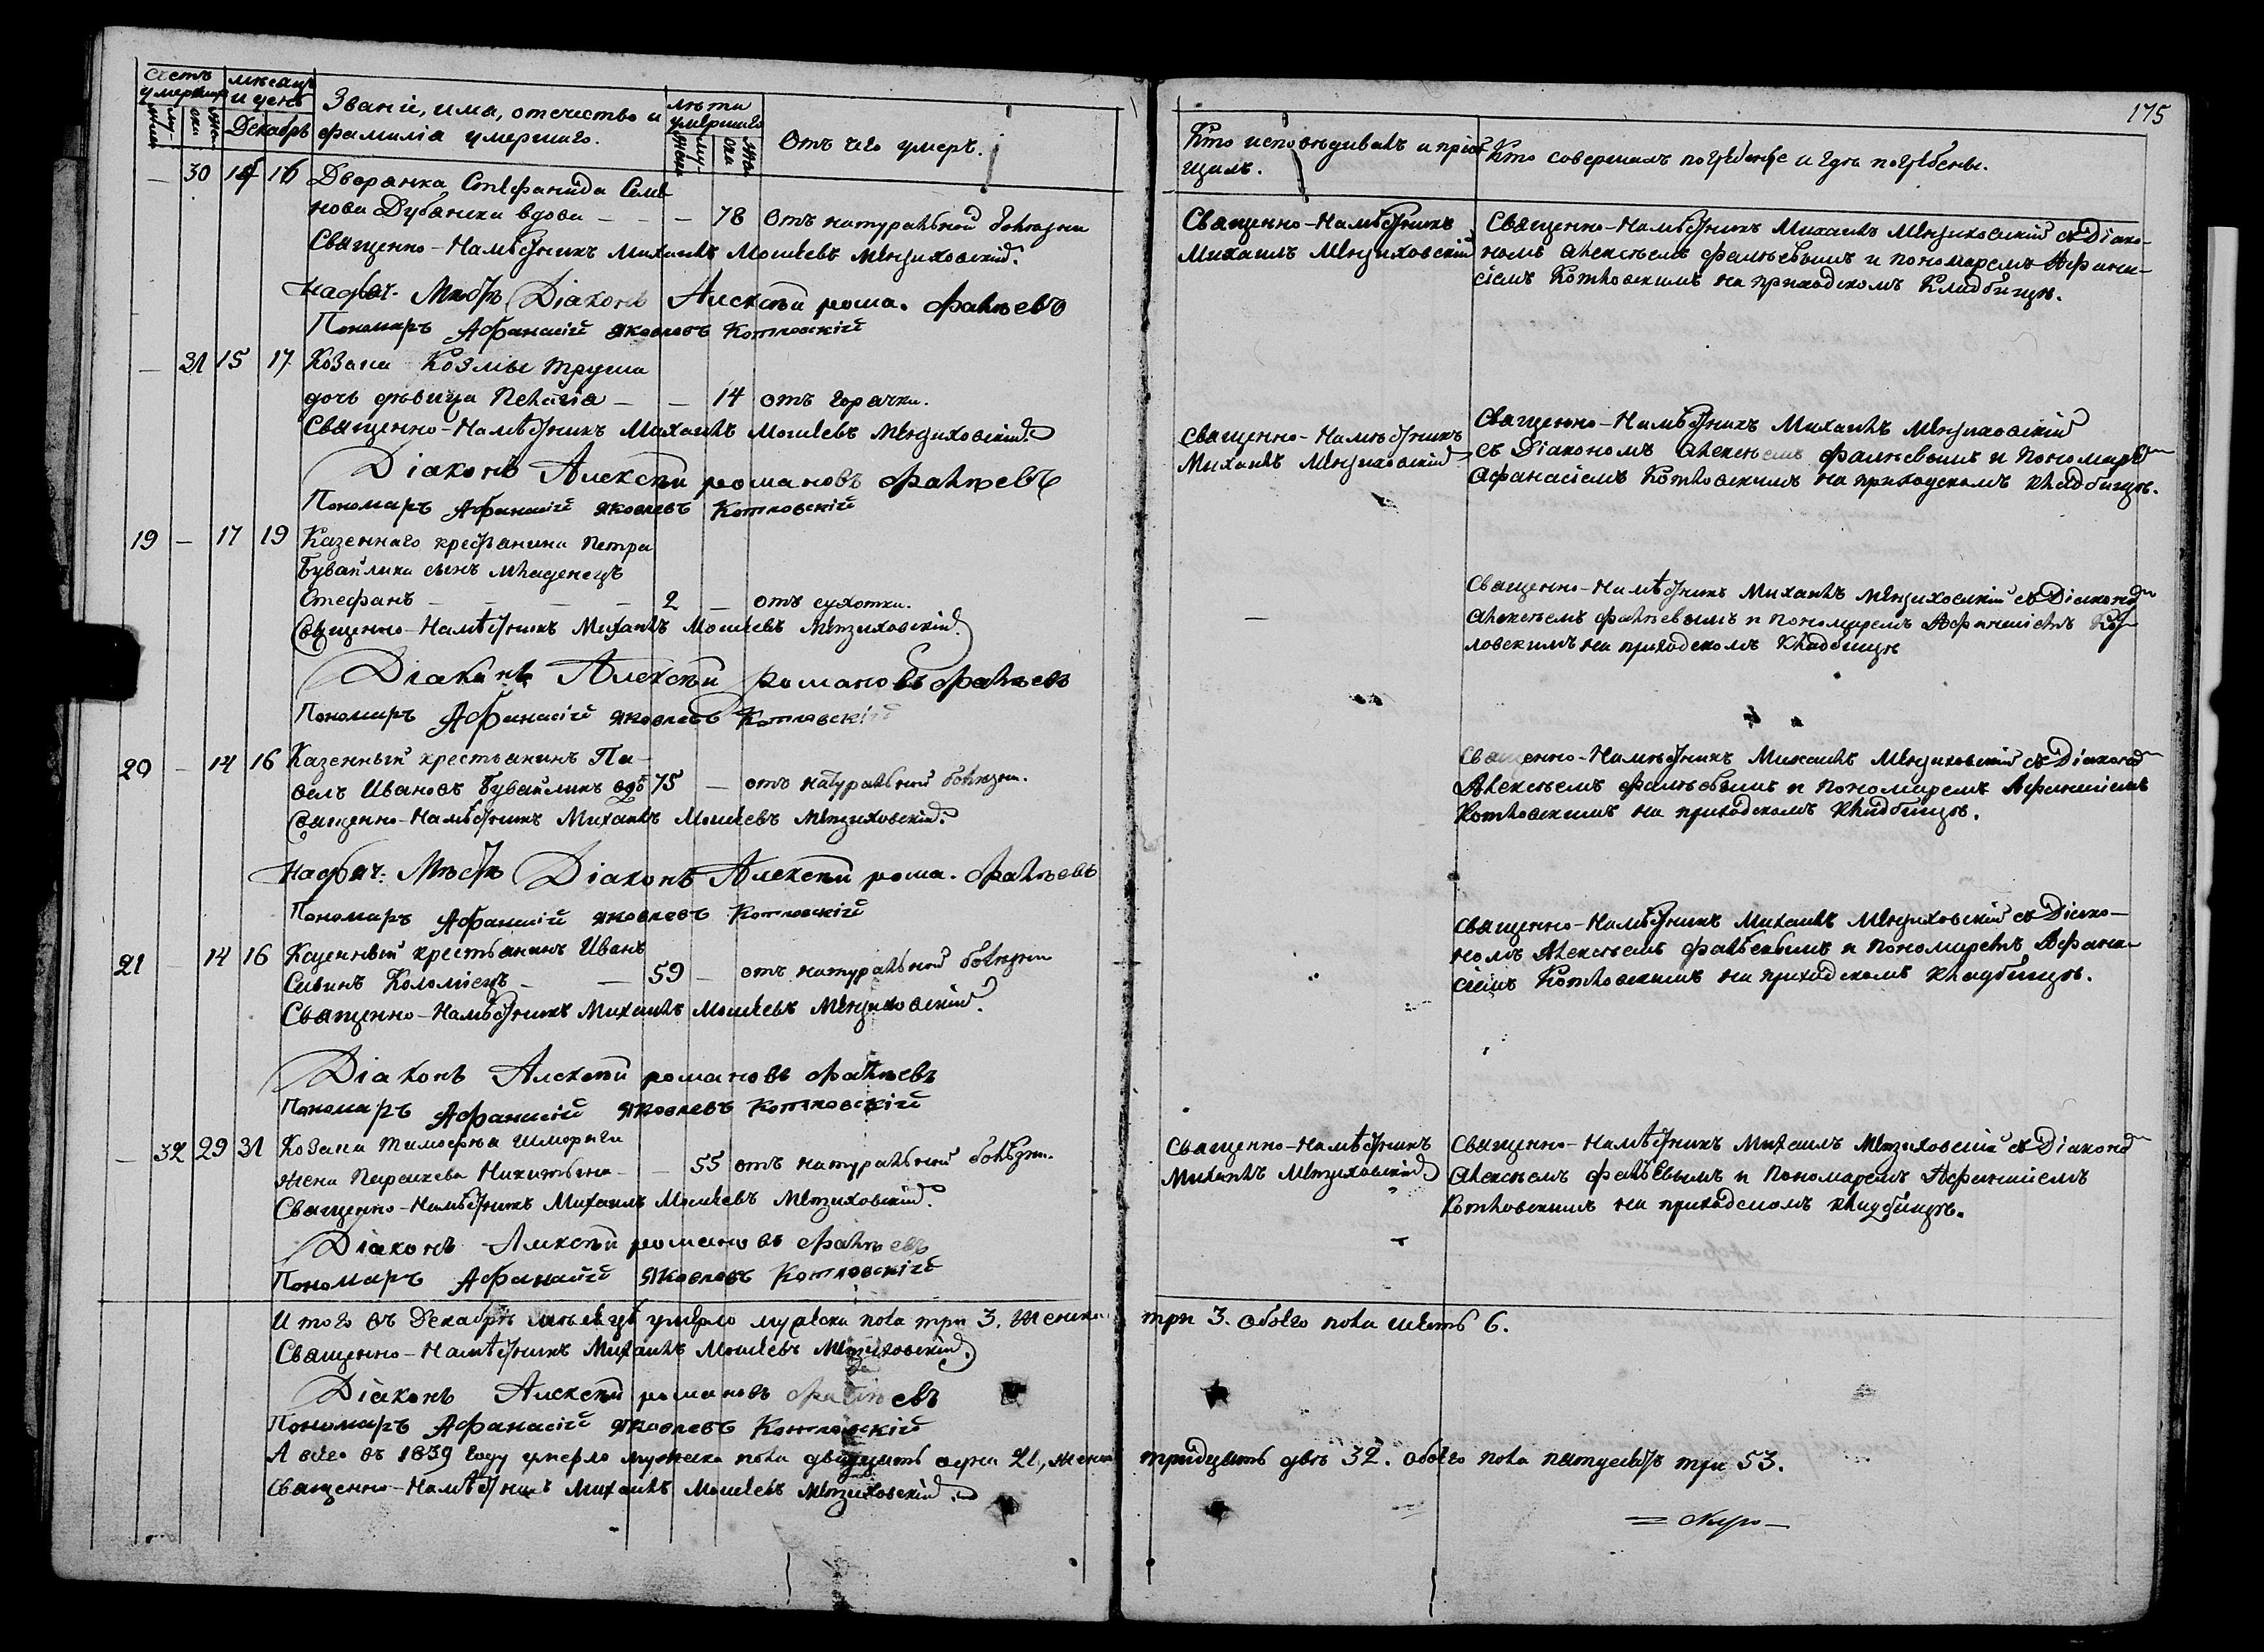 175
Счетъ умершихъ
мѣсяцъ и день
Декабрь
Званіе, имя, отечество и
фамилія умершаго.
лѣта умершаго
Отъ чего умеръ.
Кто исповѣдивалъ и пріоб
щилъ.
Кто совершалъ погребеніе и гдѣ погребены.
— 30 14 16 Дворянка Стефанида Семе
нова вдова — — — 78 Отъ натуральной болѣзни
Священно-Намѣстникъ Михаилъ Моисеевъ Мензиховскій.
Діаконъ Алексѣй рома. Фалѣевъ
Пономарь Афанасій Яковлевъ Котловскій
Священно-Намѣстникъ
Михаилъ Мензиховскій
Священно-Намѣстникъ Михаилъ Мензиховскій съ Діако-
номъ Алексѣемъ Фалѣевымъ и пономаремъ Афана-
сіемъ Котловскимъ на приходскомъ Кладбищѣ.
— 31 15 17 Козака Козмы Труша
дочь дѣвица Пелагія — — 14 отъ горячки.
Священно-Намѣстникъ Михаилъ Моисеевъ Мензиховскій
Діаконъ Алексѣй романовъ Фалѣевъ
Пономарь Афанасій Яковлевъ Котловскій
Священно-Намѣстникъ
Михаилъ Мензиховскій
Священно-Намѣстникъ Михаилъ Мензиховскій
съ Діакономъ Алексѣемъ Фалѣевымъ и Пономаремъ
Афанасіемъ Котловскимъ на приходскомъ кладбищѣ.
19 — 17 19 Казеннаго крестьянина Петра
Бувайлика сынъ младенецъ
Стефанъ — — — — 2 — отъ сухотки.
Священно-Намѣстникъ Михаилъ Моисеевъ Мензиховскій.
Діаконъ Алексѣй романовъ Фалѣевъ
Пономарь Афанасій Яковлевъ Котловскій
—
Священно-Намѣстникъ Михаилъ Мензиховскій съ Діакономъ
Алексѣемъ Фалѣевымъ и Пономаремъ Афанасіемъ Кот
ловскимъ на приходскомъ Кладбищѣ
20 — 14 16 Казенный крестьянинъ Па-
велъ Ивановъ Бувайликъ вдо 75 — отъ натуральной болѣзни.
Священно-Намѣстникъ Михаилъ Моисеевъ Мензиховскій.
Діаконъ Алексѣй рома. Фалѣевъ
Пономарь Афанасій Яковлевъ Котловскій
Священно-Намѣстникъ Михаилъ Мензиховскій съ Діакономъ
Алексѣемъ Фалѣевымъ и Пономаремъ Афанасіемъ
Котловскимъ на приходскомъ Кладбищѣ.
21 14 16 Казенный крестьянинъ Иванъ
Савинъ Коломіецъ — — 59 — отъ натуральной болѣзни
Священно-Намѣстникъ Михаилъ Моисеевъ Мензиховскій.
Діаконъ Алексѣй романовъ Фалѣевъ
Пономарь Афанасій Яковлевъ Котловскій
Священно-Намѣстникъ Михаилъ Мензиховскій съ Діако-
номъ Алексѣемъ Фалѣевымъ и Пономаремъ Афана-
сіемъ Котловскимъ на приходскомъ кладбищѣ.
— 32 29 31 Козака Тимофѣя Шморгла
жена Параскева Никитына — — 55 отъ натуральной болѣзни.
Священно-Намѣстникъ Михаилъ Моисеевъ Мензиховскій.
Діаконъ Алексѣй романовъ Фалѣевъ
Пономарь Афанасій Яковлевъ Котловскій
Священно-Намѣстникъ
Михаилъ Мензиховскій
Священно-Намѣстникъ Михаилъ Мензиховскій съ Діакономъ
Алексѣемъ Фалѣевымъ и Пономаремъ Афанасіемъ
Котловскимъ на приходскомъ кладбищѣ.
Итого въ Декабрѣ мѣсяцѣ умерло мужеска пола три 3. женска три 3. обоего пола шесть 6.
Священно-Намѣстникъ Михаилъ Моисеевъ Мензиховскій
Діаконъ Алексѣй романовъ Фалѣевъ
Пономарь Афанасій Яковлевъ Котловскій
А всего въ 1839 году умерло мужеска пола двадцать одна 21, женск тридцать двѣ 32. обоего пола пятдесятъ три 53.
Священно-Намѣстникъ Михаилъ Моисеевъ Мензиховскій.